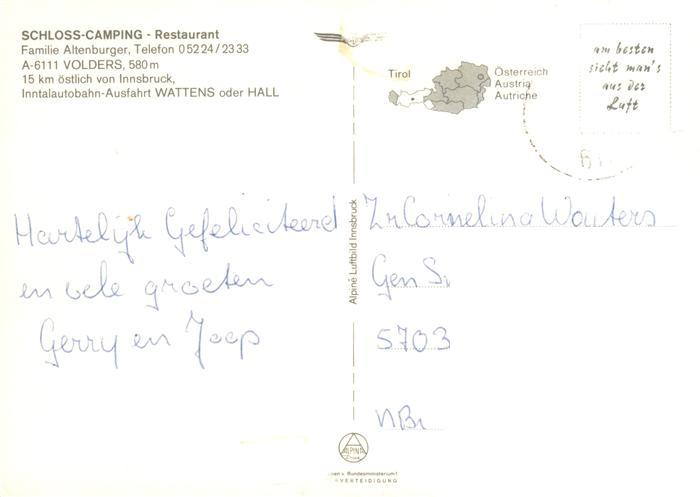 SCHLOSS-CAMPING - Restaurant
Familie Altenburger, Telefon 0 52 24 / 23 33
A-6111 VOLDERS, 580 m
15 km östlich von Innsbruck,
Inntalautobahn-Ausfahrt WATTENS oder HALL
Tirol
Österreich
Austria
Autriche
am besten
sieht man's
aus der
Luft
Hartelijk Gefeliciteerd
en vele groeten
Gerry en Joop
Alpine Luftbild Innsbruck
Zr Cornelina Wouters
Gen Sr
5703
NBr
ALPINE
Bundesministerium f.
VERTEIDIGUNG